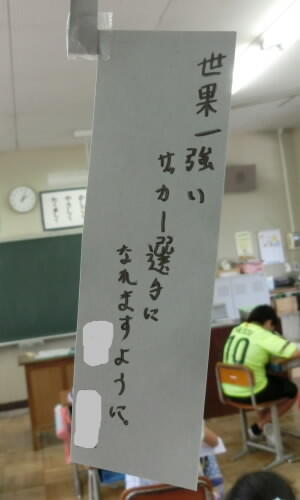 世果一強い
サッカー選手に
なれますように。
10